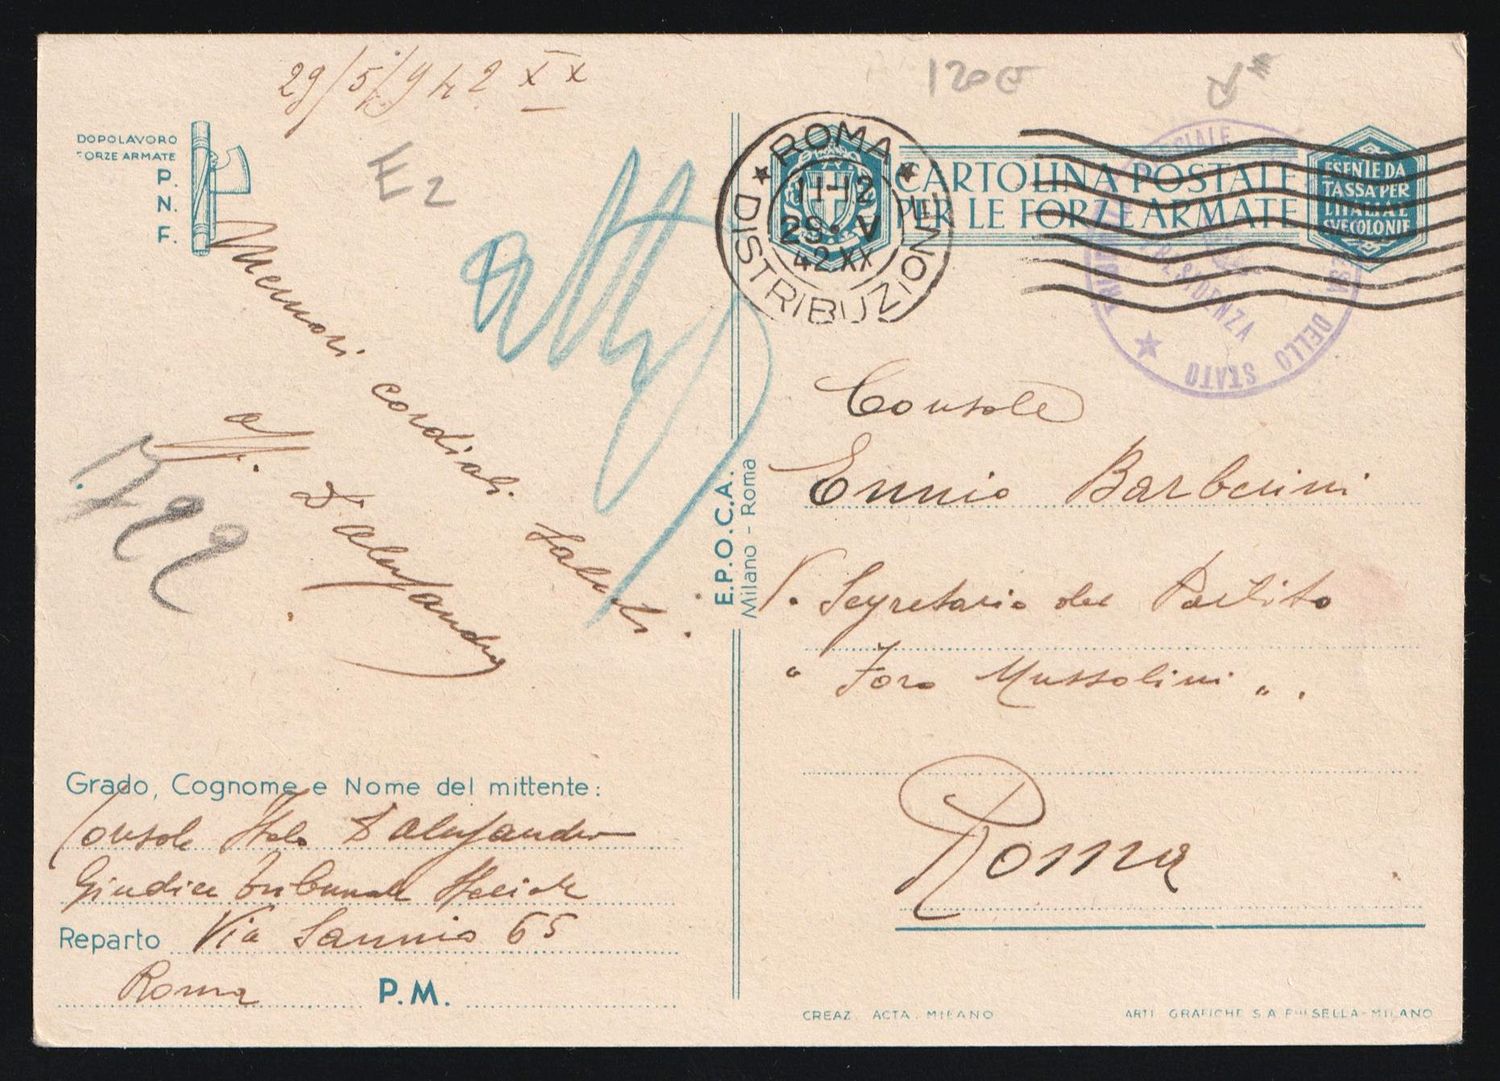 29/5/942 XX
120€
E2
DOPOLAVORO
FORZE ARMATE
P.
N.
F.
Memori cordiali saluti.
D'Alessandro
atti
ROMA
DISTRIBUZIONE
11-12
29·V
42.XX
CARTOLINA POSTALE
PER LE FORZE ARMATE
ESENTE DA
TASSA PER
L'ITALIA E
SUE COLONIE
SPECIALE
DELLO STATO
PRESIDENZA
Console
Ennio Barberini
V. Segretario del Partito
" Foro Mussolini ".
Roma
E.P.O.C.A.
Milano - Roma
Grado, Cognome e Nome del mittente:
Console Italo D'Alessandro
Giudice Tribunale Speciale
Reparto Via Sannio 65
Roma P.M.
CREAZ. ACTA. MILANO
ARTI GRAFICHE S.A. PIZZI SELLA-MILANO